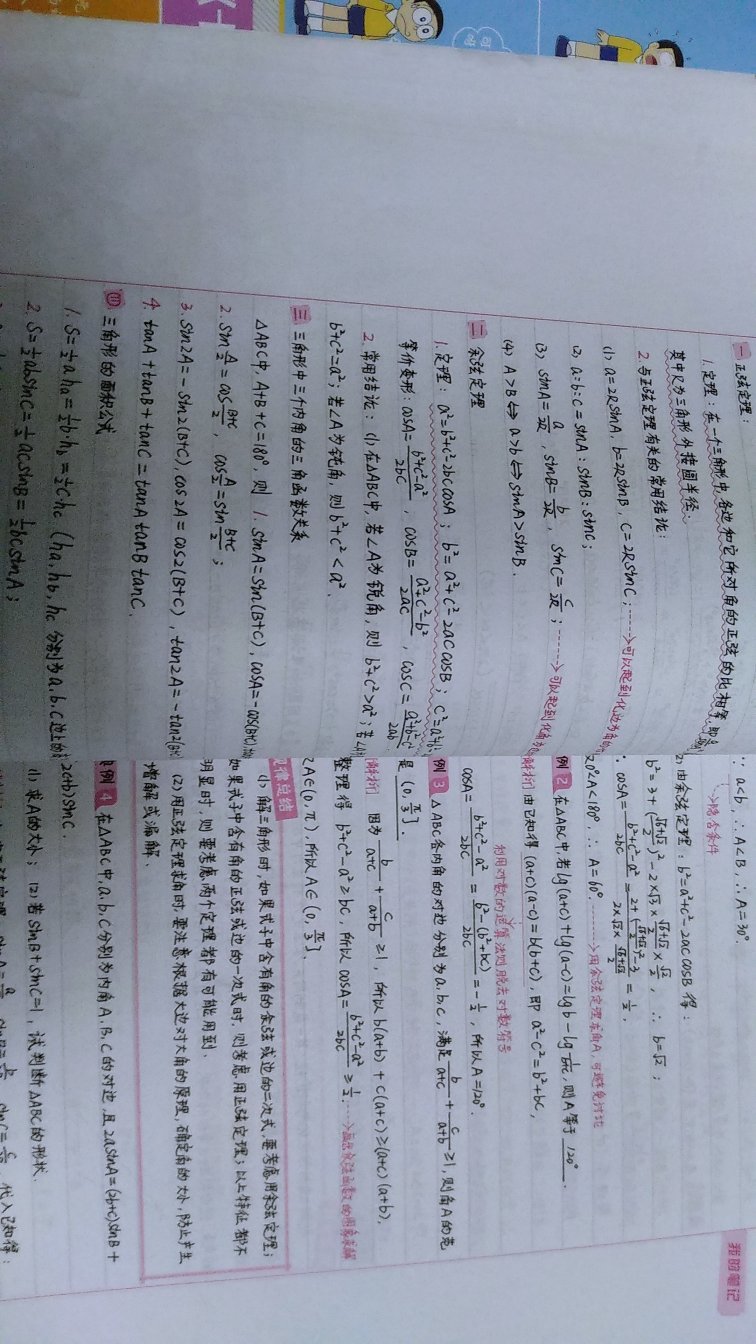 我的笔记
一 正弦定理:
1. 定理:在一个三角形中,各边和它所对角的正弦的比相等,即
其中R为三角形外接圆半径.
2. 与正弦定理有关的常用结论:
(1) a=2RsinA, b=2RsinB, c=2RsinC; ……→可以起到化边为角的
(2) a:b:c=sinA:sinB:sinC;
(3) sinA=a/2R, sinB=b/2R, sinC=c/2R; ……→可以起到化角为
(4) A>B⇔a>b⇔sinA>sinB.
二 余弦定理
1. 定理: a²=b²+c²-2bccosA; b²=a²+c²-2accosB; c²=a²+b²
等价变形: cosA=(b²+c²-a²)/2bc, cosB=(a²+c²-b²)/2ac, cosC=(a²+b²-c²)/2ab
2. 常用结论: (1) 在△ABC中, 若∠A为锐角, 则b²+c²>a²; 若∠A
b²+c²=a²; 若∠A为钝角, 则b²+c²<a².
三 三角形中三个内角的三角函数关系
△ABC中, A+B+C=180°, 则 1. sinA=sin(B+C), cosA=-cos(B+C),
2. sin A/2=cos (B+C)/2, cos A/2=sin (B+C)/2;
3. sin2A=-sin2(B+C), cos2A=cos2(B+C), tan2A=-tan2(B+C)
4. tanA+tanB+tanC=tanAtanBtanC.
四 三角形的面积公式
1. S=½aha=½b·hb=½chc (ha, hb, hc 分别为a, b, c边上的
2. S=½absinC=½acsinB=½bcsinA;
∵ a<b, ∴ A<B, ∴ A=30°.
→隐含条件
2) 由余弦定理: b²=a²+c²-2accosB 得:
b²=3+((√6+√2)/2)²-2×√3×(√6+√2)/2×√2/2, ∴ b=√2;
∴ cosA=(b²+c²-a²)/2bc=(2+((√6+√2)/2)²-3)/(2×√2×(√6+√2)/2)=½,
又0°<A<180°, ∴ A=60° ……→用余弦定理求角A, 可避免讨论
例2 在△ABC中, 若lg(a+c)+lg(a-c)=lgb-lg 1/(b+c), 则A等于 120°.
解析 由已知得 (a+c)(a-c)=b(b+c), 即 a²-c²=b²+bc,
利用对数的运算法则脱去对数符号
cosA=(b²+c²-a²)/2bc=(b²-(b²+bc))/2bc=-½, 所以A=120°.
例3 △ABC各内角的对边分别为a, b, c, 满足 b/(a+c)+c/(a+b)≥1, 则角A的范
是 (0, π/3].
解析 因为 b/(a+c)+c/(a+b)≥1, 所以b(a+b)+c(a+c)≥(a+c)(a+b),
整理得 b²+c²-a²≥bc, 所以 cosA=(b²+c²-a²)/2bc≥½,
又A∈(0, π), 所以A∈(0, π/3].
规律总结
(1) 解三角形时, 如果式子中含有角的余弦或边的二次式, 要考虑用余弦定理;
如果式子中含有角的正弦或边的一次式时, 则考虑用正弦定理; 以上特征都不
明显时, 则要考虑两个定理都有可能用到.
(2) 用正弦定理求角时, 要注意根据大边对大角的原理, 确定角的大小, 防止产生
增解或漏解.
例4 在△ABC中, a, b, c分别为内角A, B, C的对边, 且2asinA=(2b+c)sinB+
2c+b)sinC.
(1) 求A的大小; (2) 若sinB+sinC=1, 试判断△ABC的形状.
代入已知得: